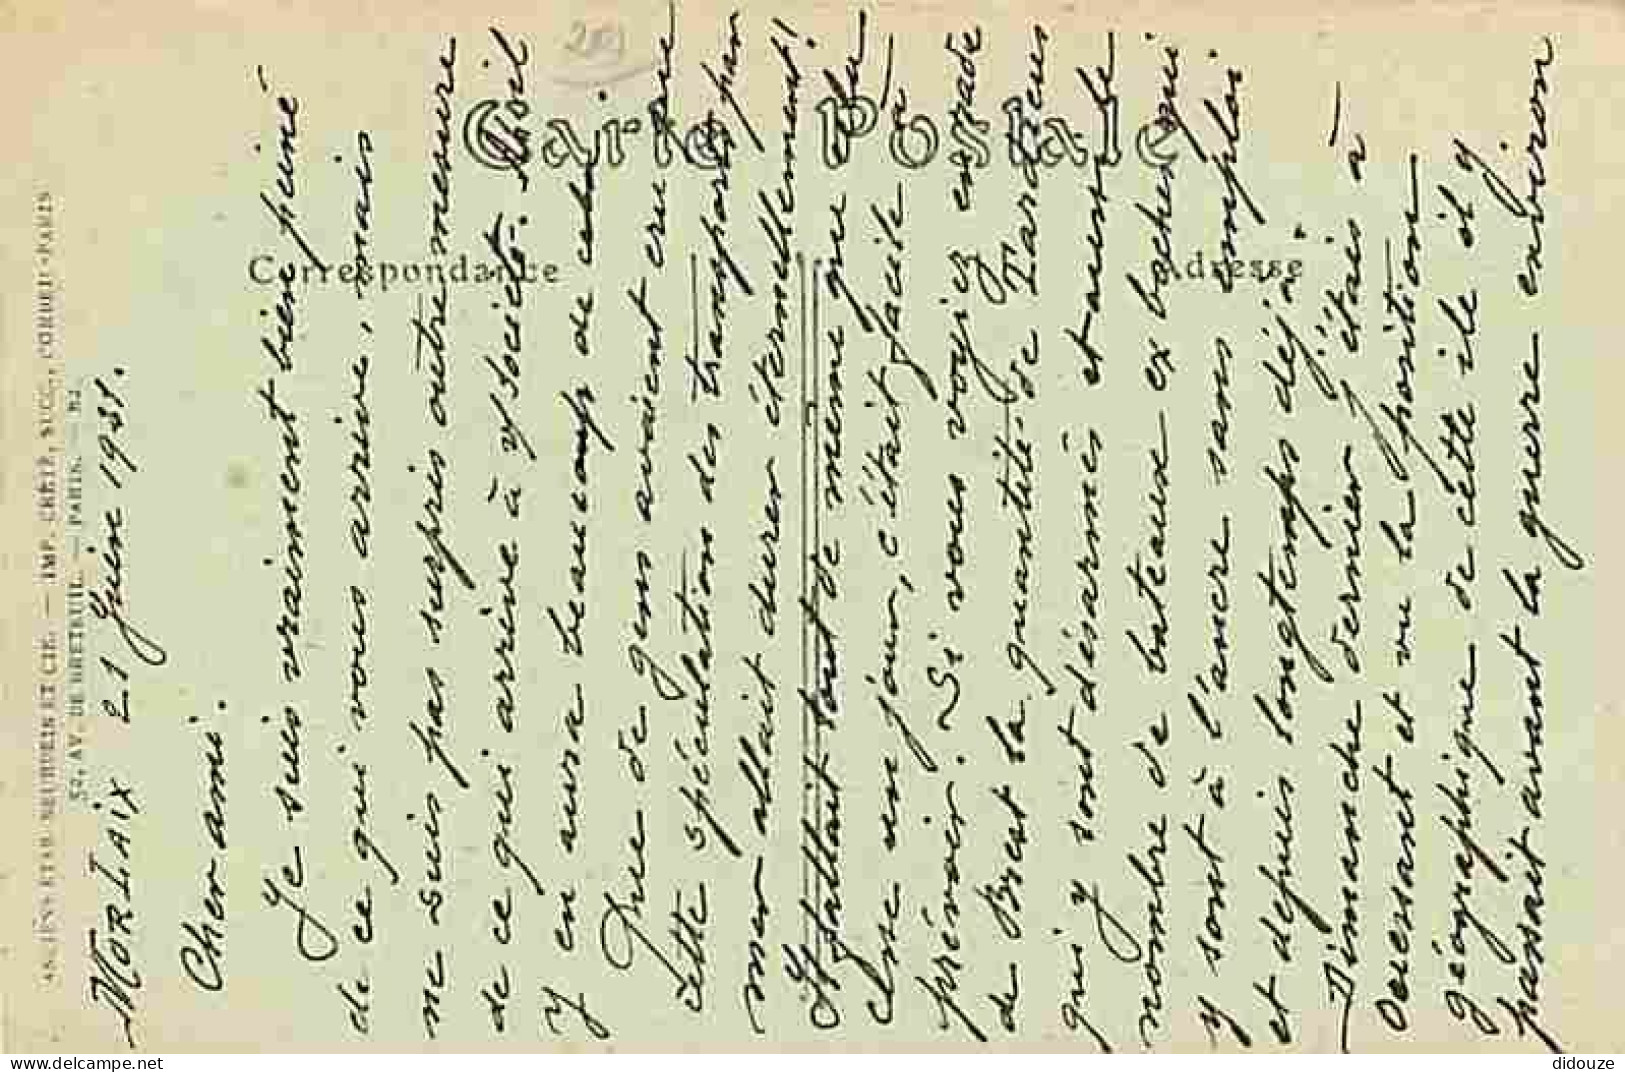 ANCIENS ETAB. NEURDEIN ET CIE. — IMP. CRÉTÉ, SUCC., CORBEIL-PARIS
52, AV. DE BRETEUIL. — PARIS. —
Carte Postale
Correspondance
Adresse
MORLAIX 21 Juin 1921.
Cher ami.
Je suis vraiment bien peiné
de ce qui vous arrive, mais
me suis pas surpris outre mesure
de ce qui arrive à y/ Société. Ah il
y en aura beaucoup de cela
Que de gens avaient cru que
cette spéculation des transports par
mer allait durer éternellement!
Il fallait tout de même que cela
casse un jour, c'était facile à
prévoir. Si vous voyiez en rade
de Brest la quantité de
qui y sont désarmés et aussi le
nombre de bateaux ex boches qui
y sont à l'ancre sans emploi
et depuis longtemps déjà.
Dimanche dernier j'étais à
Ouessant et vu la position
géographique de cette ile il y
passait avant la guerre environ
didouze